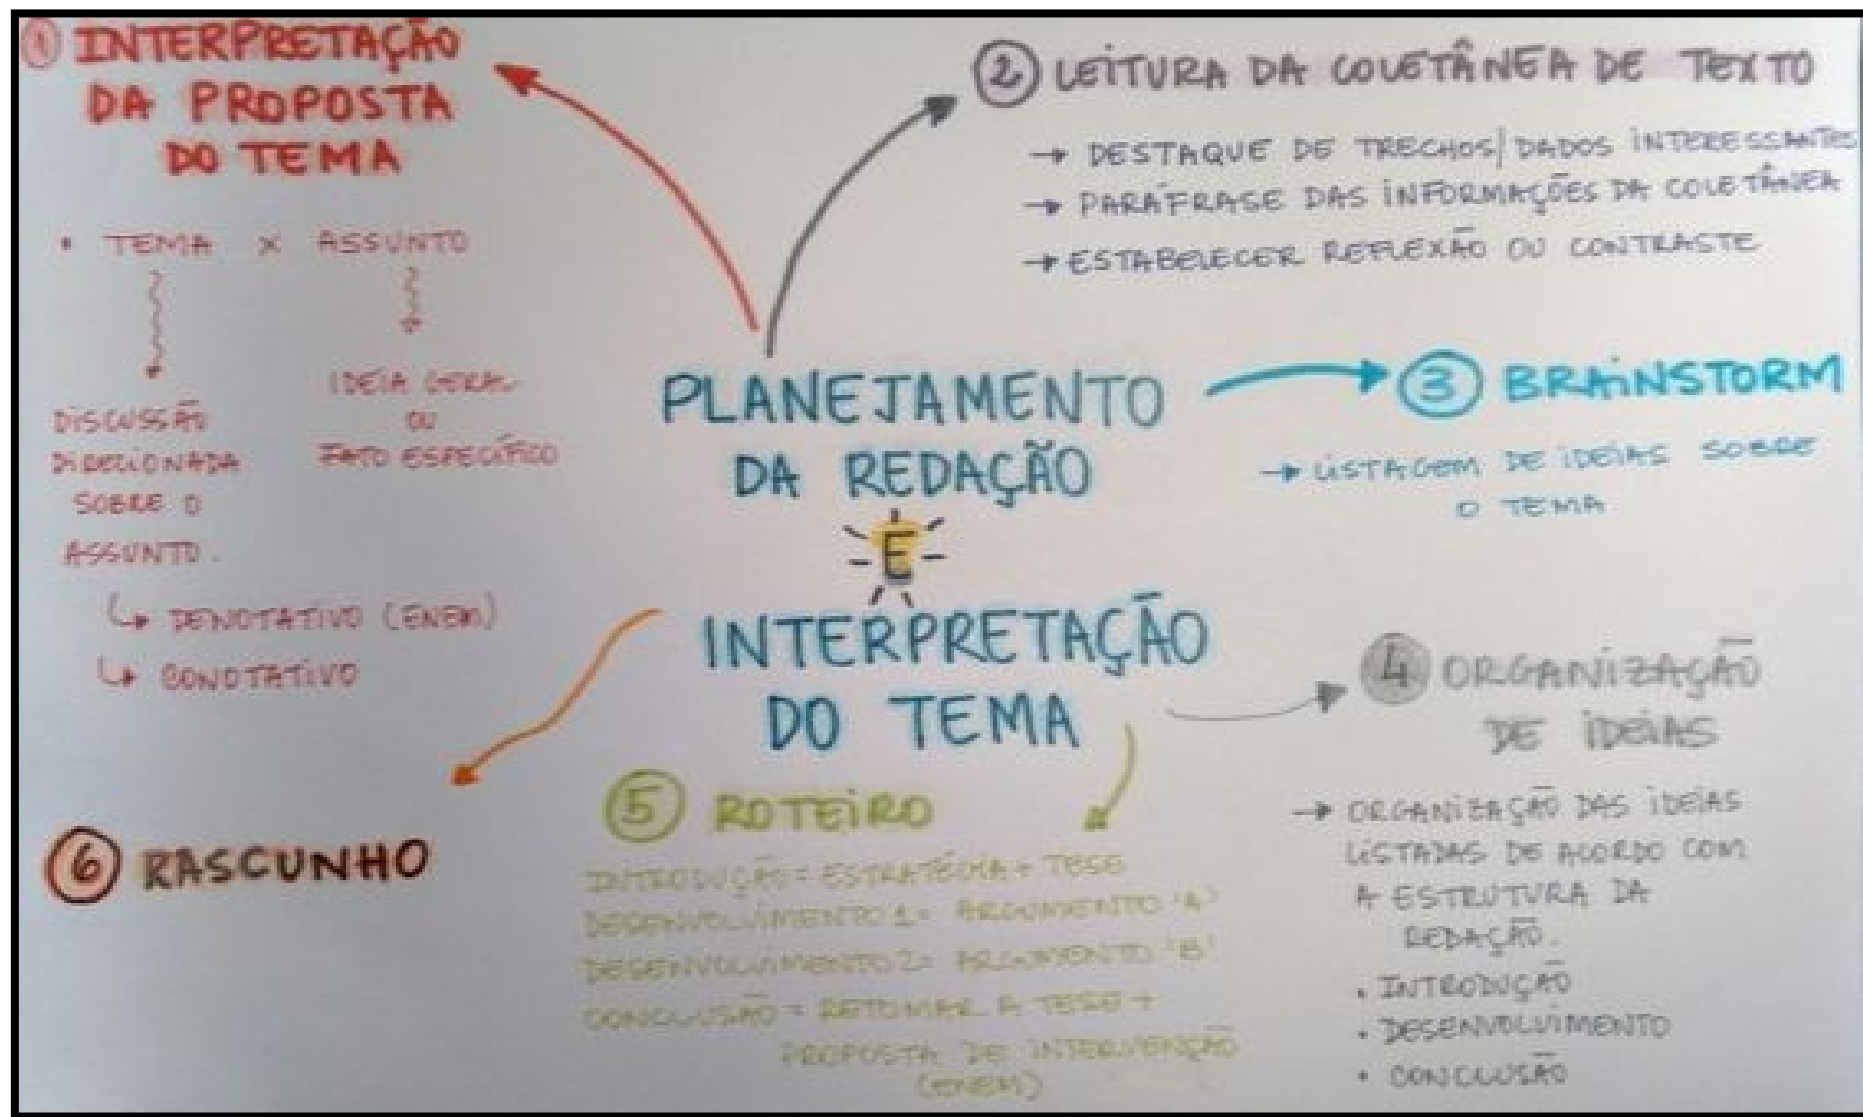 1 INTERPRETAÇÃO
DA PROPOSTA
DO TEMA
• TEMA X ASSUNTO
DISCUSSÃO
DIRECIONADA
SOBRE O
ASSUNTO.
IDEIA GERAL
OU
FATO ESPECÍFICO
↳ DENOTATIVO (ENEM)
↳ CONOTATIVO
2 LEITURA DA COLETÂNEA DE TEXTO
→ DESTAQUE DE TRECHOS/DADOS INTERESSANTES
→ PARÁFRASE DAS INFORMAÇÕES DA COLETÂNEA
→ ESTABELECER REFLEXÃO OU CONTRASTE
PLANEJAMENTO
DA REDAÇÃO
E
INTERPRETAÇÃO
DO TEMA
3 BRAINSTORM
→ LISTAGEM DE IDEIAS SOBRE
O TEMA
4 ORGANIZAÇÃO
DE IDEIAS
→ ORGANIZAÇÃO DAS IDEIAS
LISTADAS DE ACORDO COM
A ESTRUTURA DA
REDAÇÃO.
• INTRODUÇÃO
• DESENVOLVIMENTO
• CONCLUSÃO
5 ROTEIRO
INTRODUÇÃO = ESTRATÉGIA + TESE
DESENVOLVIMENTO 1 = ARGUMENTO 'A'
DESENVOLVIMENTO 2 = ARGUMENTO 'B'
CONCLUSÃO = RETOMAR A TESE +
PROPOSTA DE INTERVENÇÃO
(ENEM)
6 RASCUNHO